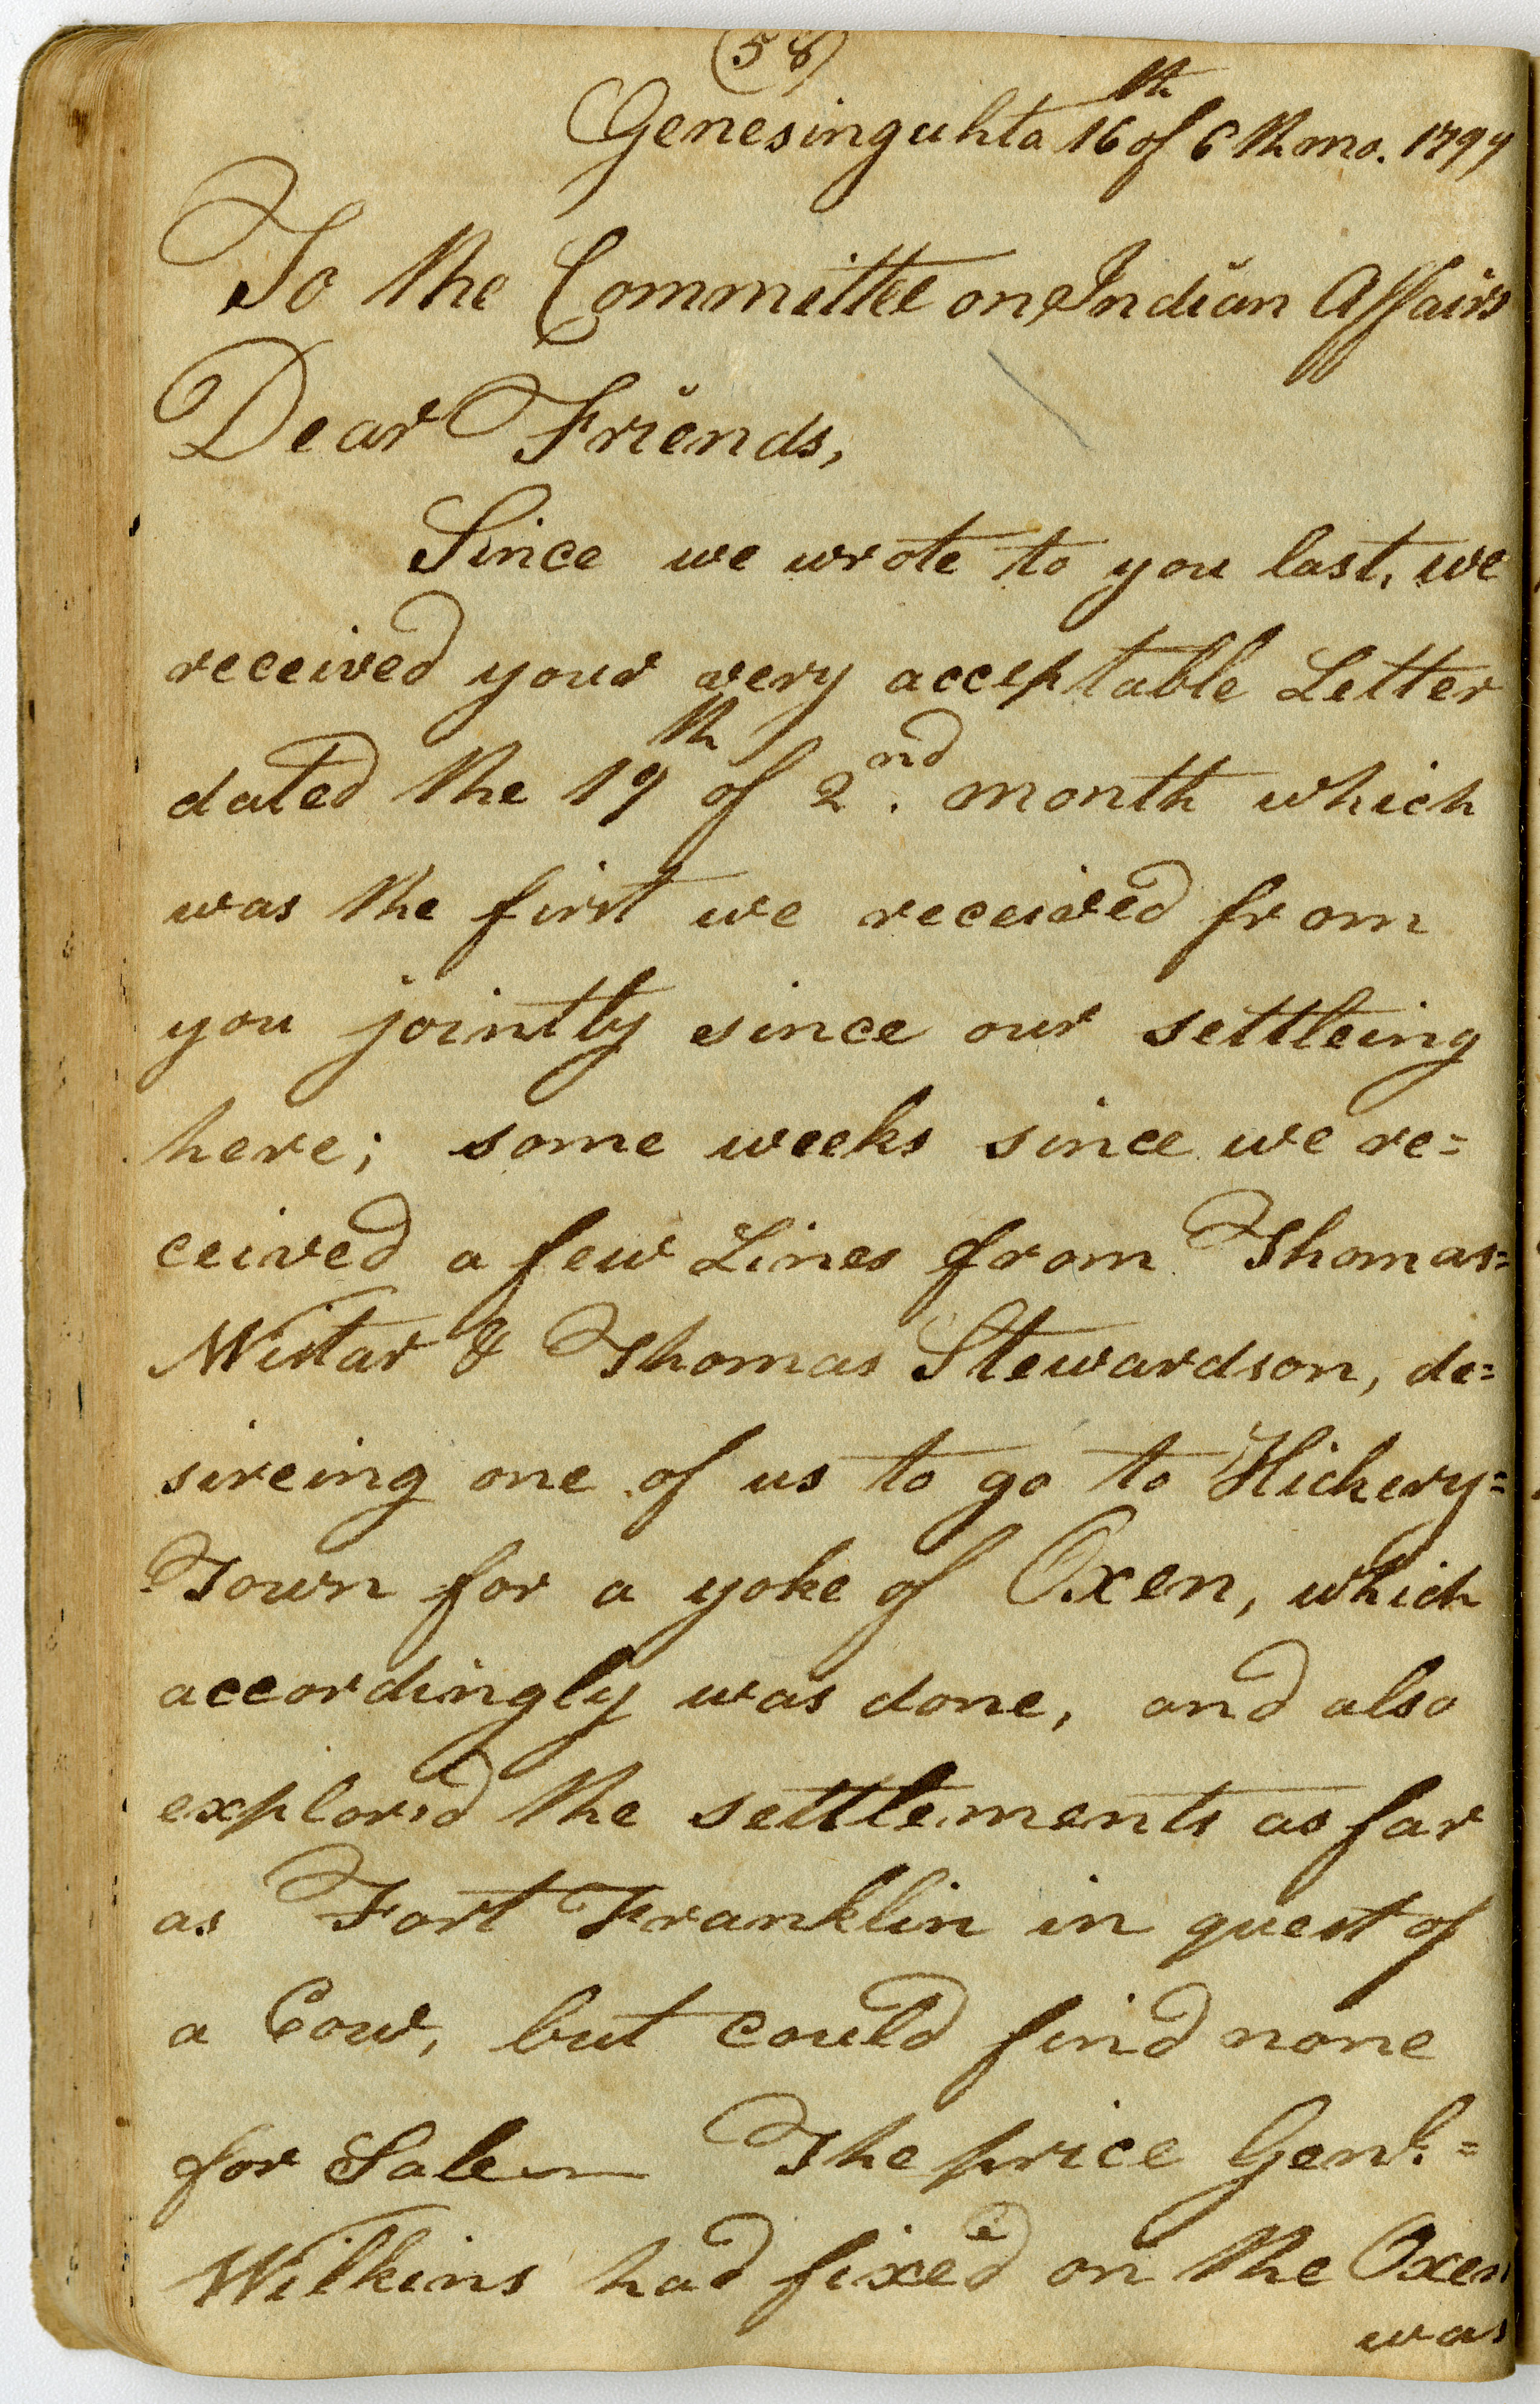 (58)
Genesinguhta 16th of 6th mo. 1799
To the Committee on Indian Affairs
Dear Friends,
Since we wrote to you last, we
received your very acceptable Letter
dated the 19th of 2nd. month which
was the first we received from
you jointly since our settleing
here; some weeks since we re=
ceived a few Lines from Thomas=
Wistar & Thomas Stewardson, de=
sireing one of us to go to Hickery=
Town for a yoke of Oxen, which
accordingly was done, and also
explor'd the settlements as far
as Fort Franklin in quest of
a Cow, but could find none
for Sale— The price Genl.=
Wilkins had fixed on the Oxen
was